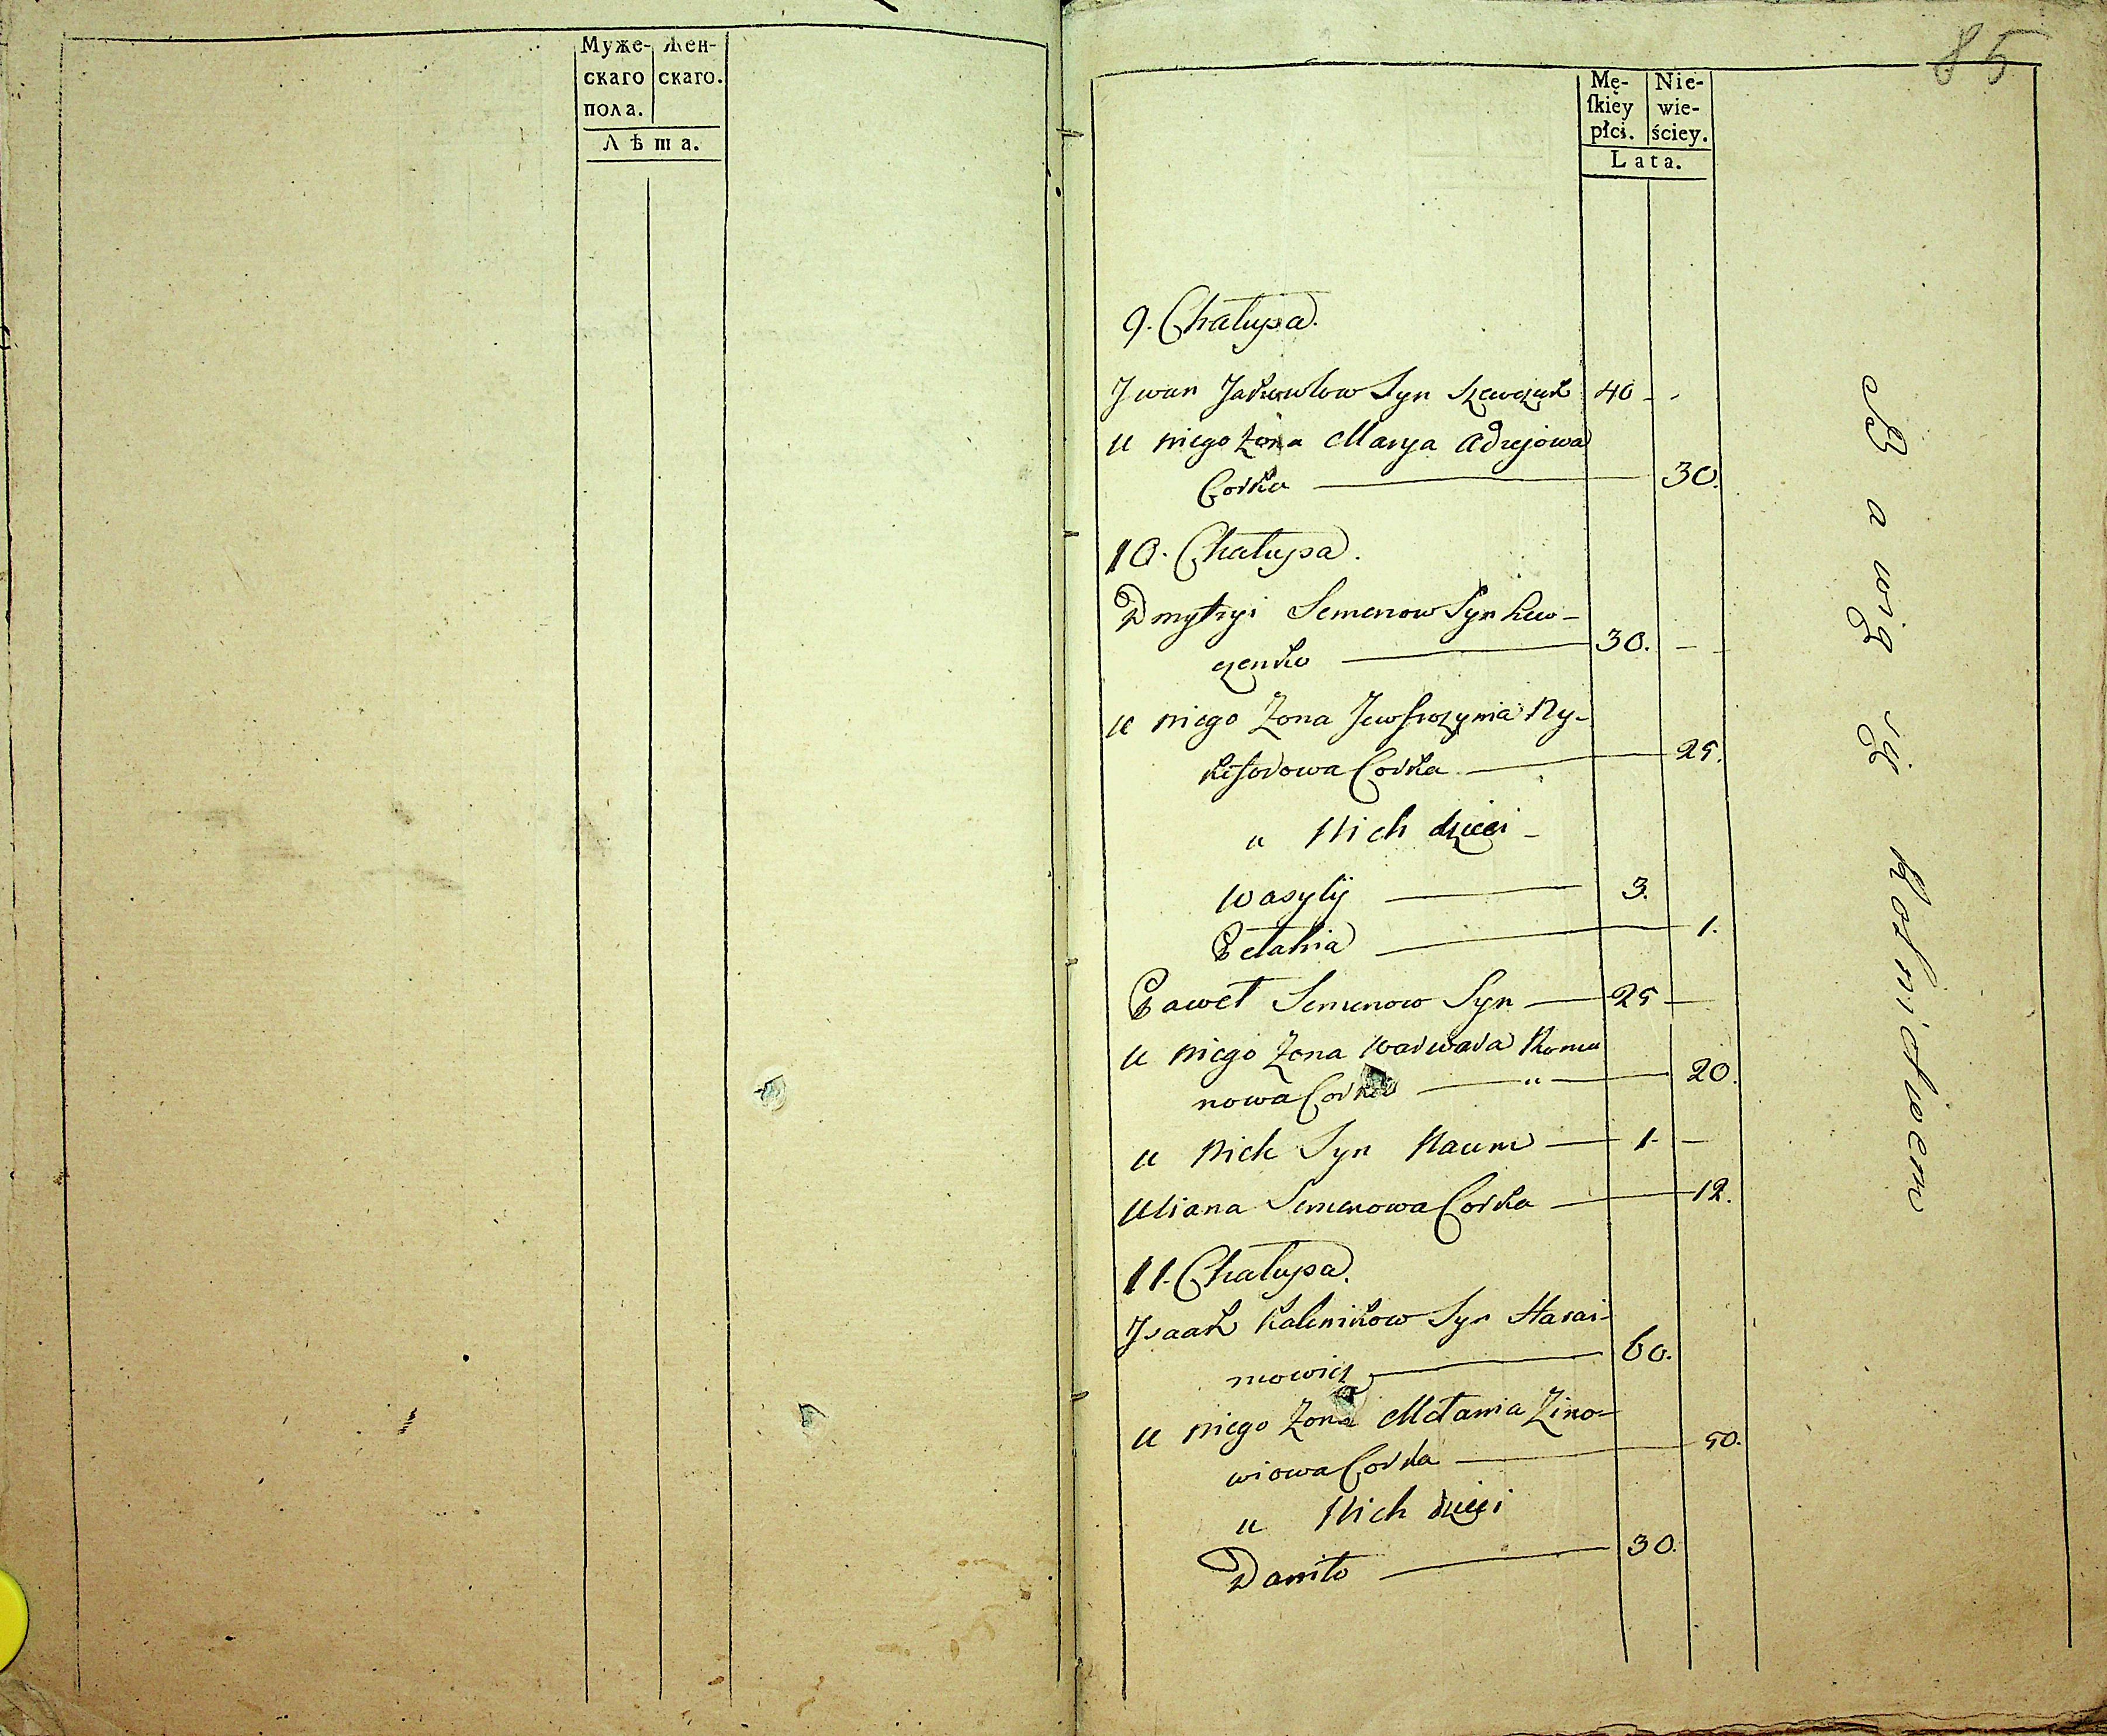 Муже- Жен-
скаго скаго.
пола.
Лѣта.
85
Mę- Nie-
ſkiey wie-
płci. ściey.
Lata.
9. Chałupa.
Jwan Jakowlow Syn Szewczuk 40 - -
u niego Żona Marya Adrejowa
Corka 30.
10. Chałupa.
Dmytryi Semenow Syn
czenko 30. -
u niego Żona Jewfrozynia Ny-
kiforowa Corka 25.
u Nich dzieci -
Wasylij 3.
Pełahia 1.
Paweł Semenow Syn 25 -
u niego Żona Warwara Roma
nowa Corka " 20.
u Nich Syn Naum 1 - -
Uliana Semenowa Corka 12.
11. Chałupa.
Jsaak Kalenikow Syn Harai-
mowicz 60.
u niego Żona Mełania Zino-
wiowa Corka 50.
u Nich dzieci
Daniło 30.
Bawią się Rolnictwem